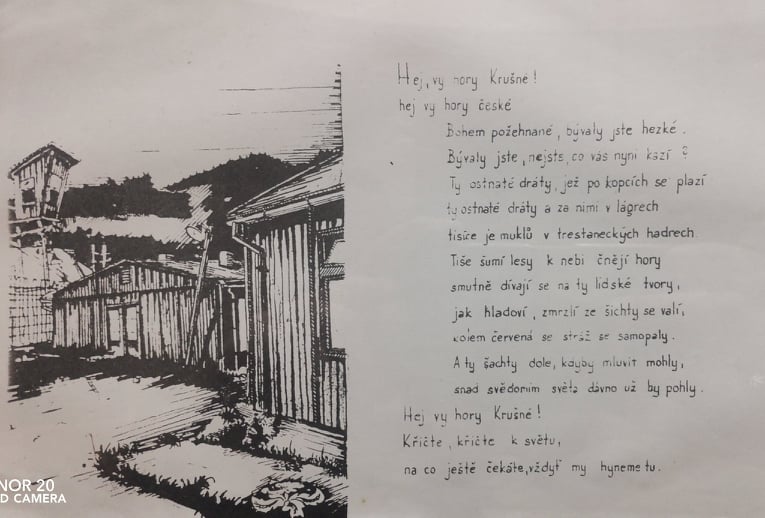 Hej, vy hory Krušné!
hej vy hory české
Bohem požehnané, bývaly jste hezké.
Bývaly jste, nejste, co vás nyní kazí?
Ty ostnaté dráty, jež po kopcích se plazí
ty ostnaté dráty a za nimi v lágrech
tisíce je muklů v trestaneckých hadrech.
Tiše šumí lesy k nebi čnějí hory
smutně dívají se na ty lidské tvory,
jak hladoví, zmrzlí ze šichty se valí,
kolem červená se stráž se samopaly.
A ty šachty dole, kdyby mluvit mohly,
snad svědomím světa dávno už by pohly.
Hej vy hory Krušné!
Křičte, křičte k světu,
na co ještě čekáte, vždyť my hyneme tu.
NOR 20
D CAMERA